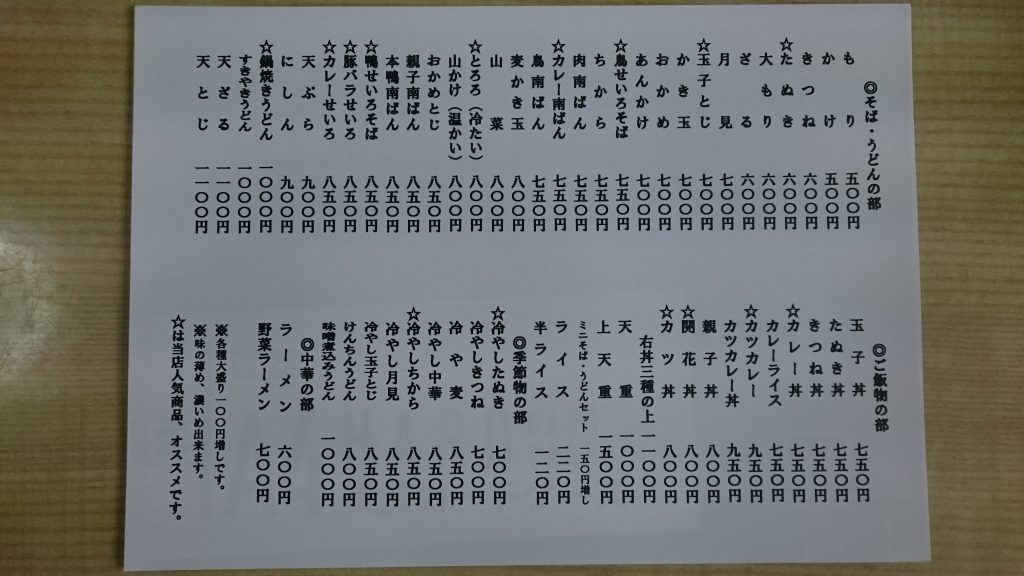 ◎そば・うどんの部
もり 五〇〇円
かけ 五〇〇円
きつね 六〇〇円
☆たぬき 六〇〇円
大もり 六〇〇円
ざる 六〇〇円
月見 七〇〇円
☆玉子とじ 七〇〇円
かき玉 七〇〇円
おかめ 七〇〇円
あんかけ 七〇〇円
☆鳥せいろそば 七五〇円
ちから 七五〇円
肉南ばん 七五〇円
☆カレー南ばん 七五〇円
鳥南ばん 七五〇円
麦かき玉 八〇〇円
山菜 八〇〇円
☆とろろ（冷たい） 八〇〇円
山かけ（温かい） 八〇〇円
おかめとじ 八〇〇円
親子南ばん 八五〇円
本鴨南ばん 八五〇円
☆鴨せいろそば 八五〇円
☆豚バラせいろ 八五〇円
☆カレーせいろ 八五〇円
天ぷら 九〇〇円
にしん 九〇〇円
☆鍋焼きうどん 一〇〇〇円
すきやきうどん 一〇〇〇円
天ざる 一一〇〇円
天とじ 一一〇〇円
◎ご飯物の部
玉子丼 七五〇円
たぬき丼 七五〇円
きつね丼 七五〇円
☆カレー丼 七五〇円
カレーライス 七五〇円
☆カツカレー 九五〇円
カツカレー丼 九五〇円
親子丼 八〇〇円
☆開花丼 八〇〇円
☆カツ丼 八〇〇円
右丼三種の上 一一〇〇円
天重 一〇〇〇円
上天重 一五〇〇円
ミニそば・うどんセット 一五〇円増し
ライス 二二〇円
半ライス 一二〇円
◎季節物の部
☆冷やしたぬき 七〇〇円
冷やしきつね 七〇〇円
冷や麦 八五〇円
冷やし中華 八五〇円
☆冷やしちから 八五〇円
冷やし月見 八五〇円
冷やし玉子とじ 八五〇円
けんちんうどん 八〇〇円
味噌煮込みうどん 一〇〇〇円
◎中華の部
ラーメン 六〇〇円
野菜ラーメン 七〇〇円
※各種大盛り一〇〇円増しです。
※味の薄め、濃いめ出来ます。
☆は当店人気商品、オススメです。